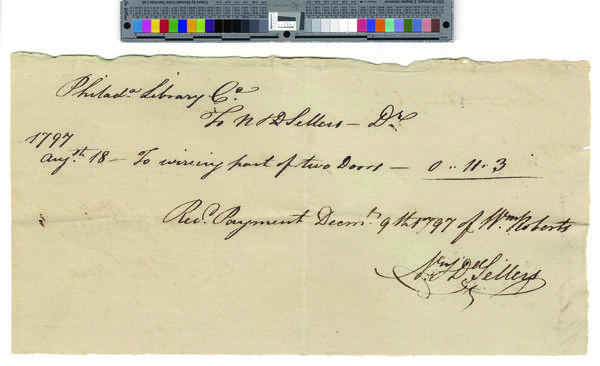 Philada Library Co.
To N & D Sellers — Dr.
1797
Augst. 18 — To wireing part of two Doors — 0 .. 11 .. 3
Recd. Payment Decmr. 9th 1797 of Wm. Roberts
N & D Sellers